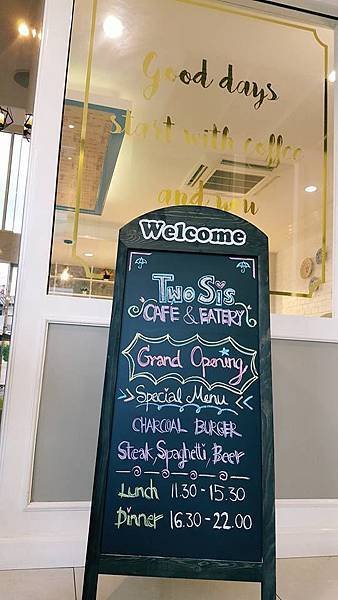 Good days
start with coffee
and you
Welcome
Two Sis
CAFE & EATERY
Grand Opening
Special Menu
CHARCOAL BURGER
Steak, Spaghetti, Beer
Lunch 11.30 - 15.30
Dinner 16.30 - 22.00